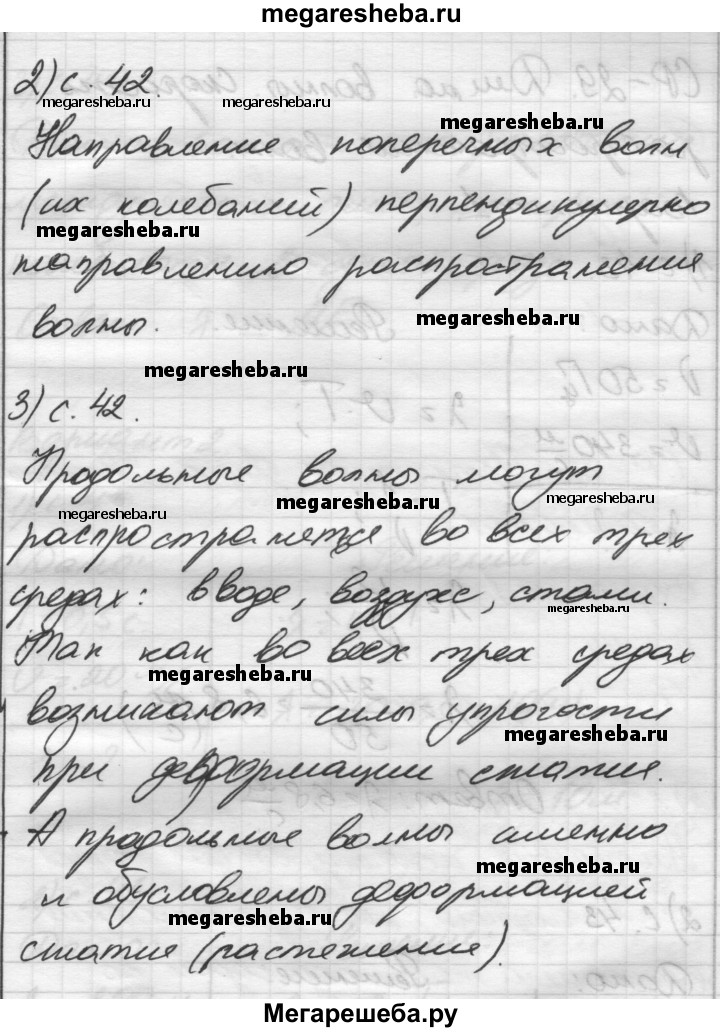 megaresheba.ru
2) с. 42.
megaresheba.ru megaresheba.ru
megaresheba.ru
Направление поперечных волн
(их колебаний) перпендикулярно
megaresheba.ru
направлению распространения
волны. megaresheba.ru
megaresheba.ru
3) с. 42.
Продольные волны могут
megaresheba.ru megaresheba.ru
megaresheba.ru
распространятся во всех трех
средах: в воде, воздухе, стали.
megaresheba.ru
Так как во всех трех средах
megaresheba.ru
возникают силы упрогости
megaresheba.ru
при деформации сжатия.
А продольные волны именно
megaresheba.ru
и обусловлены деформацией
megaresheba.ru
сжатие (растежение).
Мегарешеба.ру